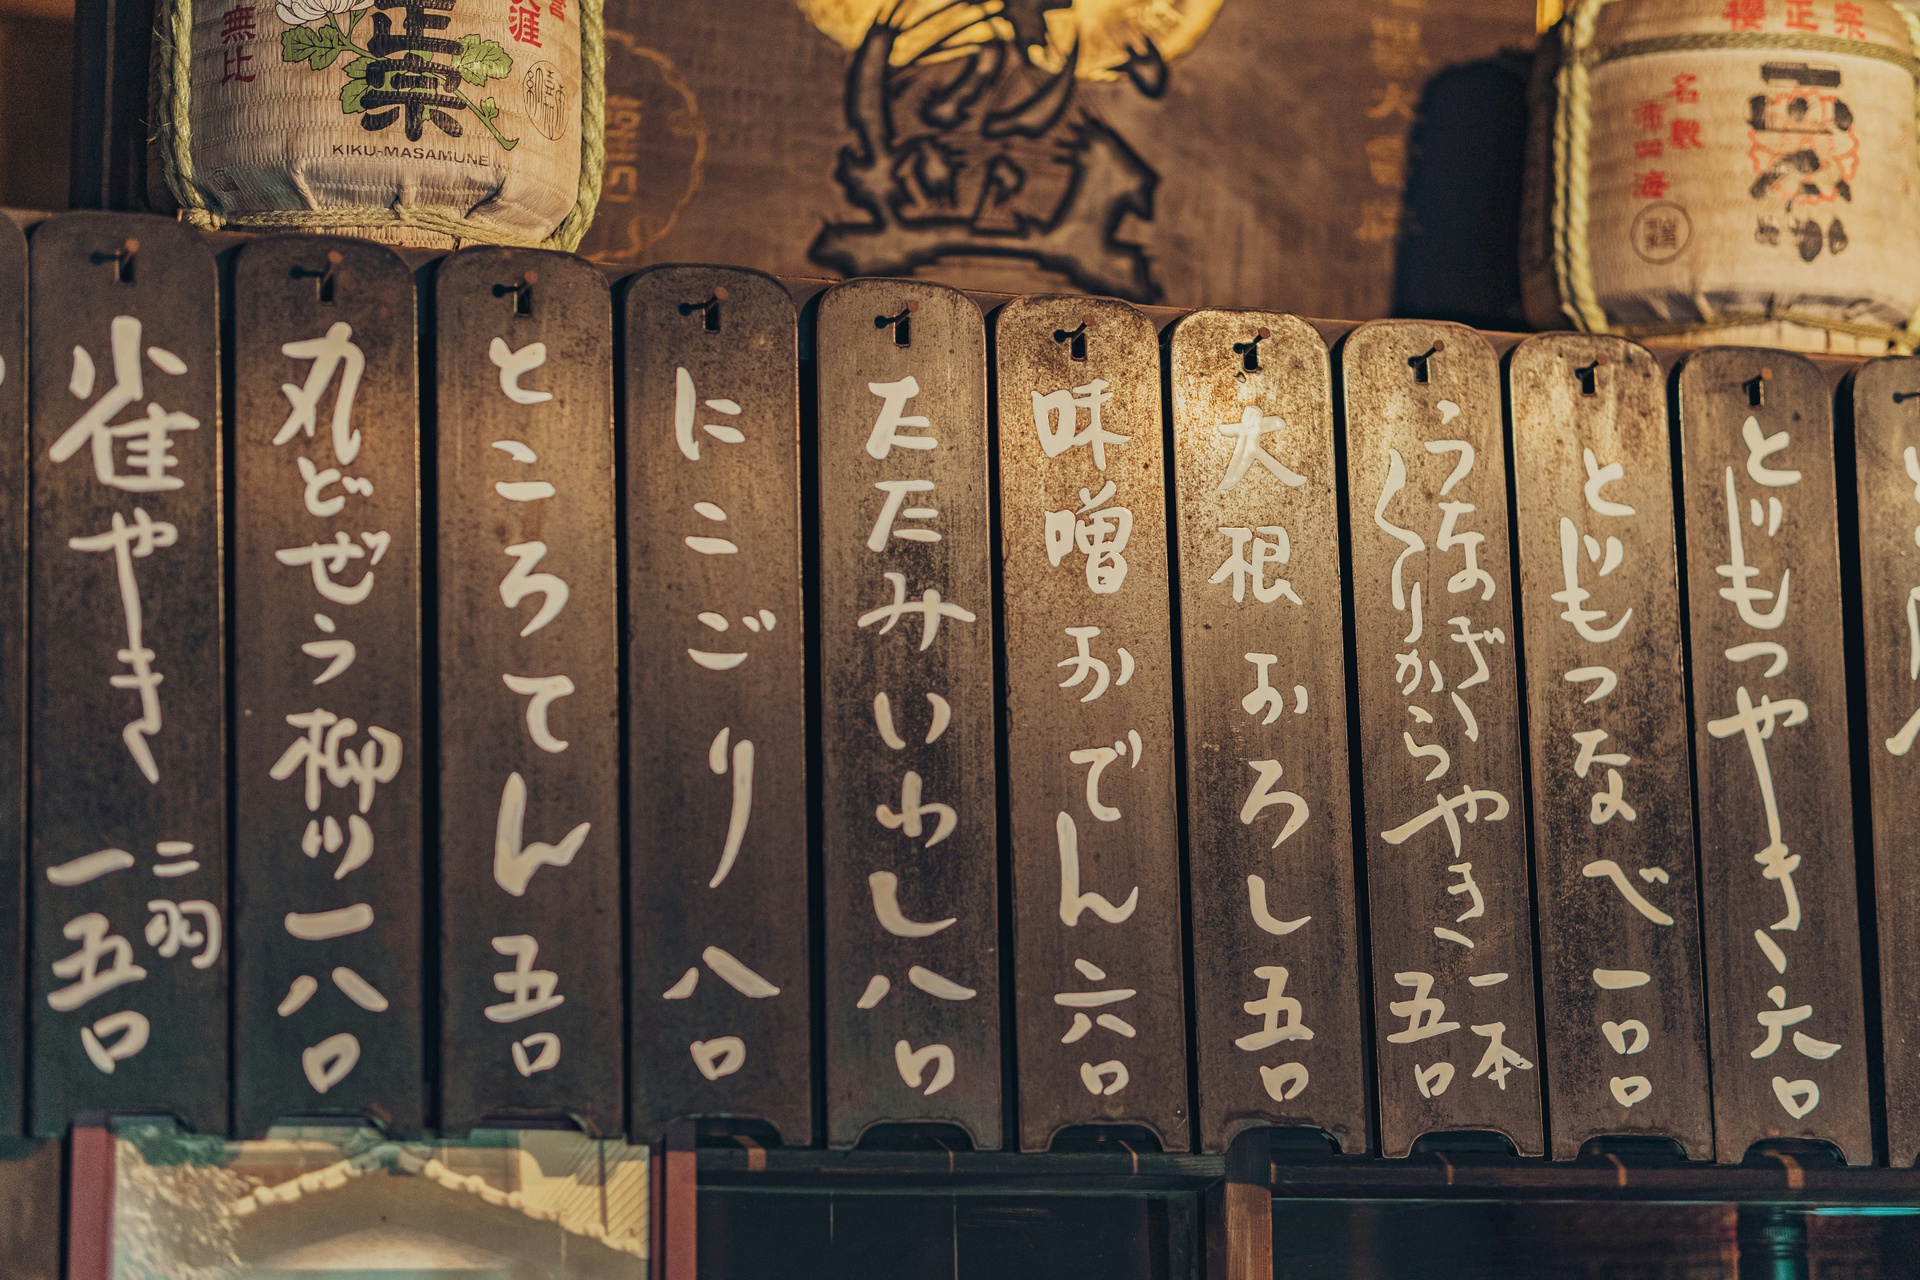 櫻正宗
とりもつやき、六〇
とりもつなべ 一〇〇
うなぎ、
くりからやき、
一本
五〇
大根おろし五〇
味噌おでん六〇
たたみいわし八〇
にこごり八〇
ところてん五〇
丸どぜう柳川一八〇
雀やき
二羽
一五〇
正宗
無比
KIKU-MASAMUNE